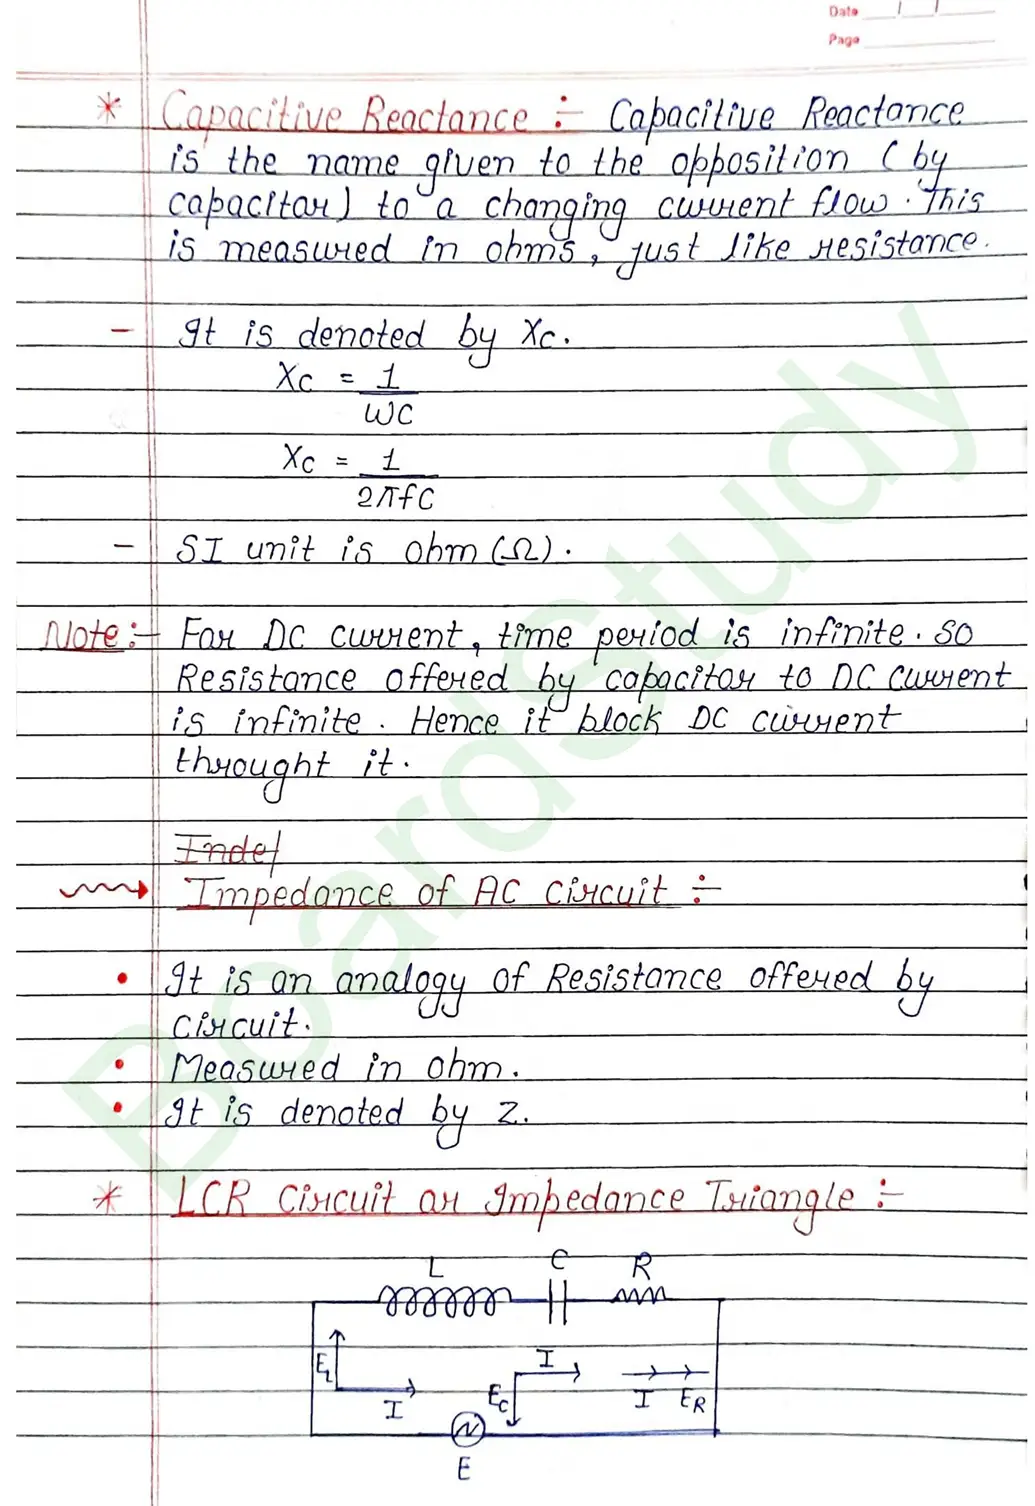 Date
Page
* Capacitive Reactance :- Capacitive Reactance
is the name given to the opposition ( by
capacitor) to a changing current flow. This
is measured in ohms, just like resistance.
- It is denoted by Xc.
Xc = 1
ωC
Xc = 1
2πfC
- SI unit is ohm (Ω).
Note :- For DC current, time period is infinite. So
Resistance offered by capacitor to DC current
is infinite. Hence it block DC current
throught it.
Inde
Impedance of AC circuit :-
• It is an analogy of Resistance offered by
circuit.
• Measured in ohm.
• It is denoted by Z.
* LCR Circuit or Impedance Triangle :-
L C R
EL I
Ec I
I ER
E
BoardStudy